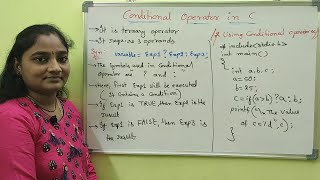 Conditional Operator in C
→ It is ternary operator
→ It require 3 operands
Syn: variable = Exp1 ? Exp2 : Exp3;
→ The Symbols used in Conditional
Operator are ? and :
→ Here, First Exp1 will be executed
( It Contains a Condition)
→ If Exp1 is TRUE, then Exp2 is the
result
→ If Exp1 is FALSE, then Exp3 is
the result
Using Conditional operator
#include<stdio.h>
main()
{
int a,b,c;
b=25;
c=(a>b)?a:b;
printf("\n The Value
of c=%d",c);
}